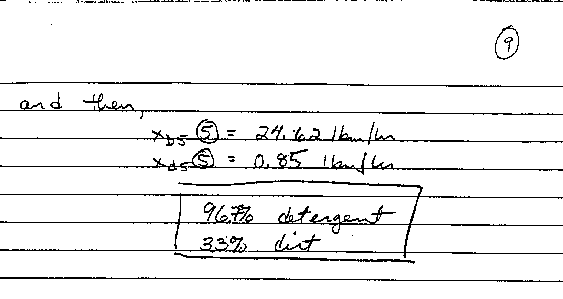 ⑨
and then,
x_D5 ⑤ = 24.62 lbm/hr
x_d5 ⑤ = 0.85 lbm/hr
96.7% detergent
3.3% dirt